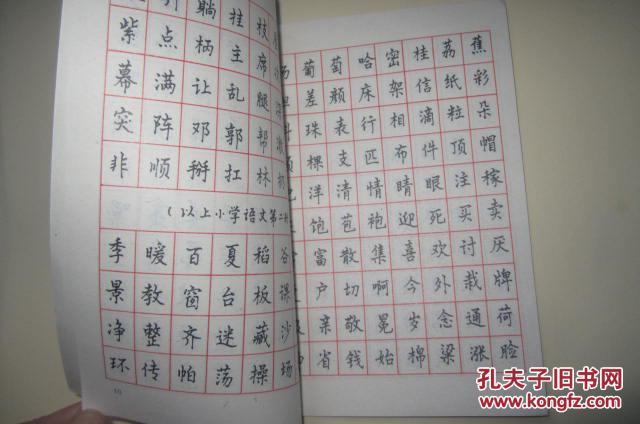 紫点柄主席
幕满让乱腿
突阵邓郭帮
非顺掰扛林
（以上小学语文第二册
季暖百夏稻谷
景教窗台板课
净整齐迷藏沙
环传帕荡操场
葡萄哈密桂荔蕉
差颗床架信纸彩
珠表行相滴粒朵
棵支匹布件顶帽
洋清情晴眼注稼
饱苞袍迎死买卖
富散集喜欢讨厌
户切啊今外栽牌
亲敬冕岁念通荷
省钱始棉梁涨脸
孔夫子旧书网
www.kongfz.com